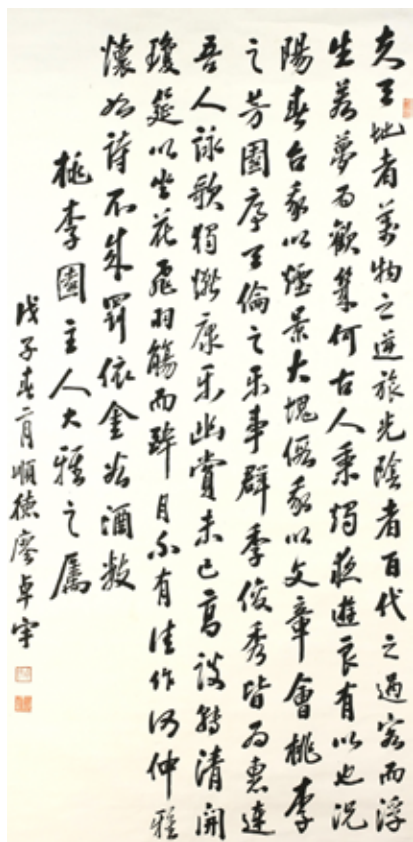 夫天地者萬物之逆旅光陰者百代之過客而浮
生若夢為歡幾何古人秉燭夜遊良有以也況
陽春召我以煙景大塊假我以文章會桃李
之芳園序天倫之樂事群季俊秀皆為惠連
吾人詠歌獨慚康樂幽賞未已高談轉清開
瓊筵以坐花飛羽觴而醉月不有佳作何伸雅
懷如詩不成罰依金谷酒數
桃李園主人大雅之屬
戊子春二月順德廖卓宇